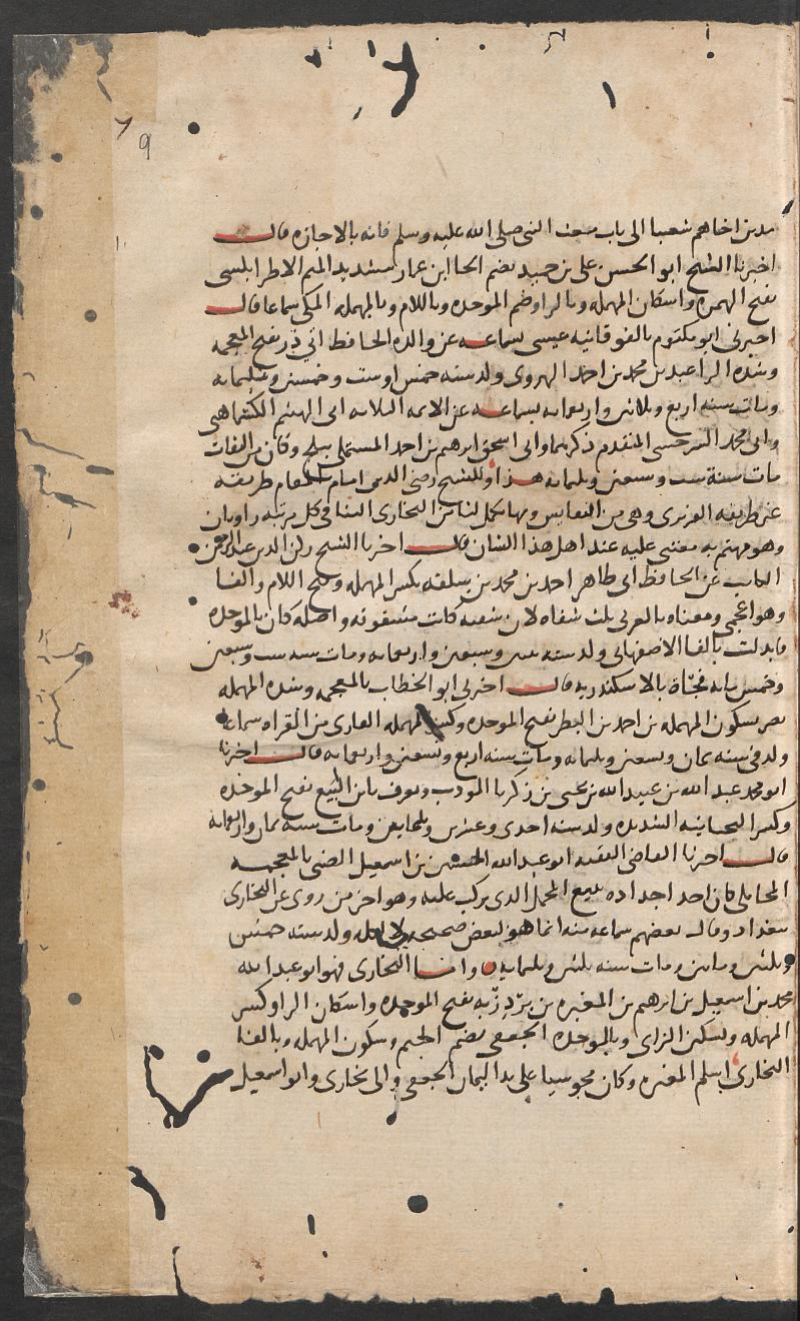 9
مدين اخاهم شعيبا الى باب مبعث النبي صلى الله عليه وسلم فانه بالاجازه قال
اخبرنا الشيخ ابو الحسن علي بن حميد بضم الحا ابن عمار بتشديد الميم الاطرابلسي
بفتح الهمزه واسكان المهمله وبالرا وضم الموحده وباللام وبالمهمله المكي سماعا قال
اخبرني ابو مكتوم بالفوقانيه عيسى بسماعه عن والده الحافظ ابي ذر بفتح المعجمه
وشده الرا عبد بن محمد بن احمد الهروي ولد سنه خمس او ست وخمسين وثلثمايه
ومات سنه اربع وثلاثين واربعمايه بسماعه عن الايمه الثلاثه ابي الهيثم الكشماهني
وابي محمد السرخسي المتقدم ذكرهما وابي اسحق ابرهيم بن احمد المستملي ببلخ وكان من الثقات
مات سنة ست وسبعين وثلثمايه هذا وللشيخ رضي الدين امام المقام طريقه
عن طريقه الفربري وهي من النفايس وبها يكمل لنا من البخاري الينا في كل مرتبه راويان
وهو مهتم به معتنى عليه عند اهل هذا الشان قال اخبرنا الشيخ ركن الدين عبد الرحمن
الكاتب عن الحافظ ابي طاهر احمد بن محمد بن سلفه بكسر المهمله وفتح اللام والفا
وهو اعجمي ومعناه بالعربي ثلث شفاه لان شفته كانت مشقوقه واصله كان بالموحده
فابدلت بالفا الاصفهاني ولد سنه وسبعين واربعمايه ومات سنه ست وسبعين
وخمس مايه فجأة بالاسكندريه قال اخبرني ابو الخطاب بالمعجمه وشده المهمله
نصر بسكون المهمله بن احمد بن البطر بفتح الموحده وكسر المهمله القاري من القراه سماعا
ولد في سنه ثمان وتسعين وثلثمايه ومات سنه اربع وتسعين واربعمايه قال اخبرنا
ابو محمد عبد الله بن عبيد الله بن يحيى بن زكريا المودب ويعرف بابن البيع بفتح الموحده
وكسر التحتانيه الشديده ولد سنه احدى وعشرين وثلثمايه ومات سنه ثمان واربعمايه
قال اخبرنا القاضي الفقيه ابو عبد الله الحسين بن اسمعيل الضبي بالمعجمه
المحاملي كان احد اجداده يبيع المحمل الذي يركب عليه وهو اخر من روى عن البخاري
ببغداد وقال بعضهم سماعه منه انما هو لبعض صحيحه لا لكله ولد سنه خمس
وثلثين ومايتين ومات سنه ثلثين وثلثمايه واما البخاري فهو ابو عبد الله
محمد بن اسمعيل بن ابرهيم بن المغيره بن بردزبه بفتح الموحده واسكان الرا وكسر
المهمله وسكون الزاي وبالموحده الجعفي بضم الجيم وسكون المهمله وبالفا
البخاري اسلم المغيره وكان مجوسيا على يد اليمان الجعفي والي بخارى وابو اسمعيل